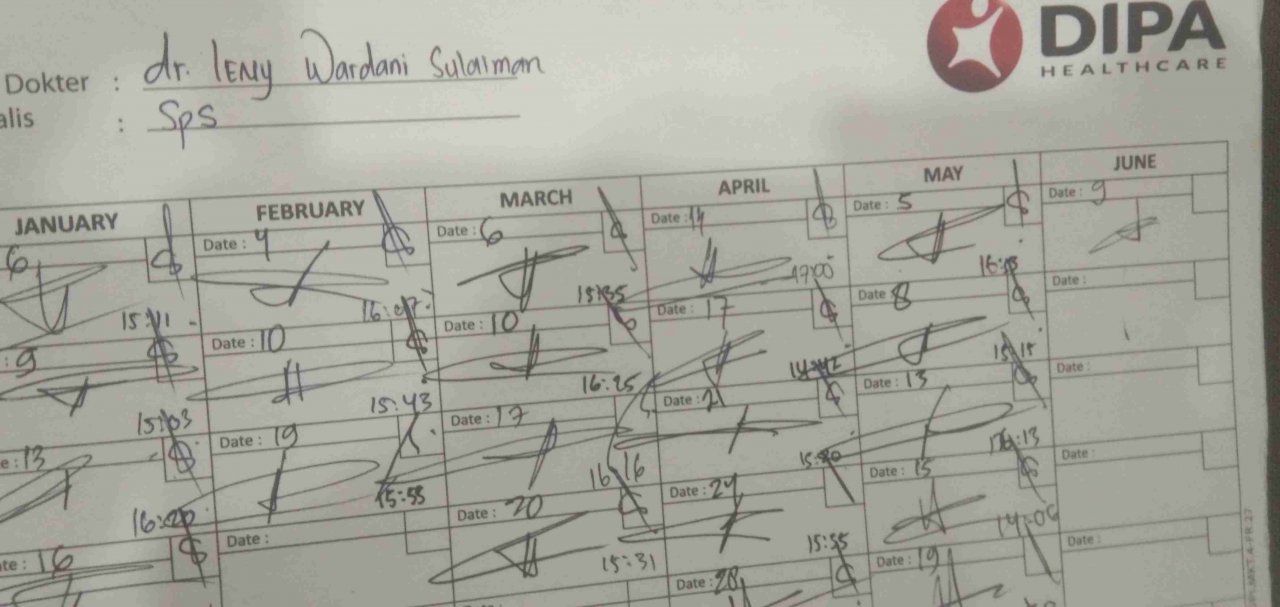 DIPA
HEALTHCARE
Dokter : dr. lENy Wardani Sulaiman
alis : Sps
JANUARY FEBRUARY MARCH APRIL MAY JUNE
6 Date : 4 Date : 6 Date : 14 Date : 5 Date : 9
15:11 16:07 15:35 17:00 16:15
: 9 Date : 10 Date : 10 Date : 17 Date 8 Date :
15:03 15:43 16:25 14:42 15:15
e : 13 Date : 19 Date : 17 Date : 21 Date : 13 Date :
16:20 15:55 16:16 15:20 16:13
ate : 16 Date : Date : 20 Date : 24 Date : 15 Date :
15:31 15:55 14:06
Date : Date : 28 Date : 19 Date :